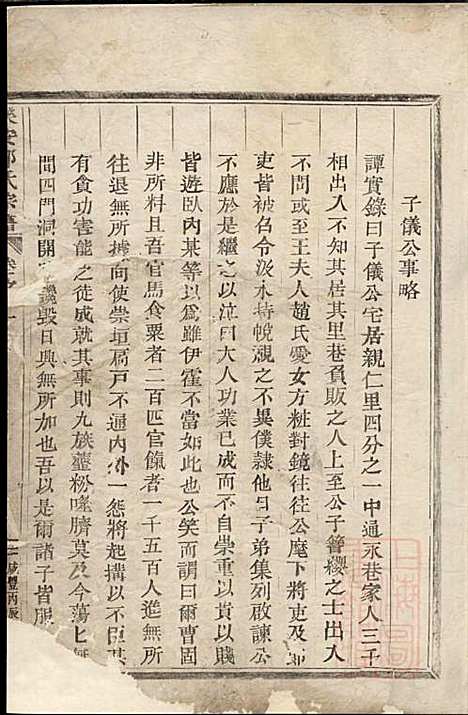 子儀公事略
譚賓錄曰子儀公宅居親仁里四分之一中通永巷家人三千
相出入不知其居其里巷負販之人上至公子簪纓之士出入
不問或至王夫人趙氏愛女方粧對鏡往往公麾下將吏及郎
吏皆被召令汲水持帨視之不異僕隸他日子弟集列啟諫公
不應於是繼之以泣曰大人功業已成而不自崇重以貴以賤
皆遊臥內某等以爲雖伊霍不當如此也公笑而謂曰爾曹固
非所料且吾官馬食粟者二百匹官餼者一千五百人進無所
往退無所據向使崇垣扃戶不通內外一怨將起搆以不臣其
有貪功害能之徒成就其事則九族虀粉噬臍莫及今蕩七無
間四門洞開 讒毀日興無所加也吾以是爾諸子皆服
郭氏宗譜
咸豐丙辰